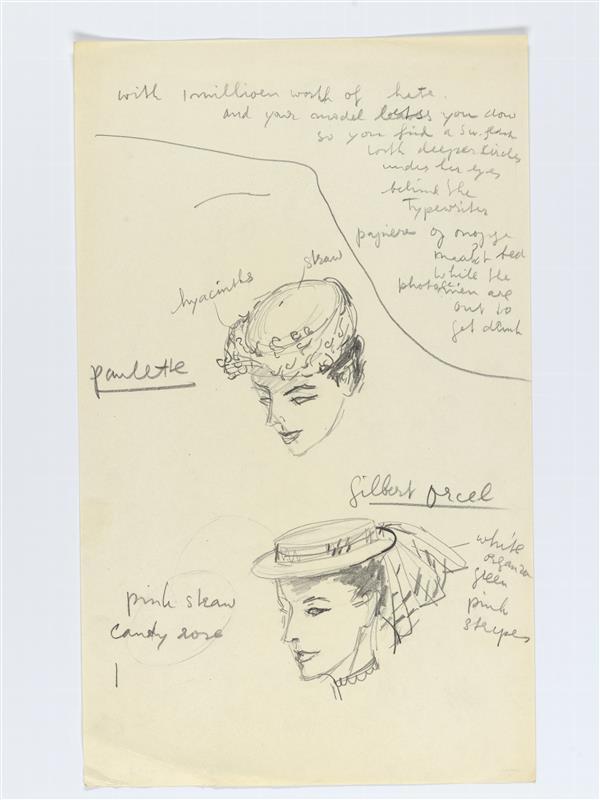 with 1 millioen worth of hats.
and your model you dow
so you find a
with deeper circles
under her eyes
behind the
Typewriter
while the
photo men are
out to
get drunk
straw
hyacinths
paulette
Gilbert Orcel
white
organza
green
pink
stripes
pink straw
candy rose